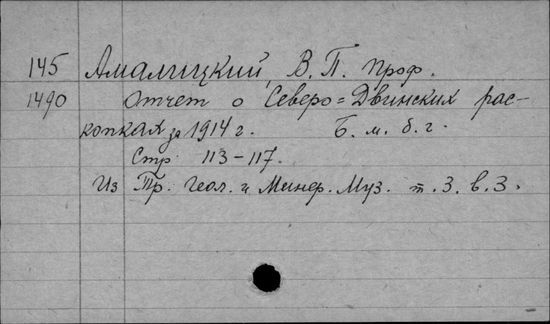 145 Амалицкий, В. П. проф.
1490 Отчет о Северо=Двинских рас-
копках за 1914 г. Б. м. б. г.
Стр 113-117.
Из Тр. Геол. и Минер. Муз. т. 3. в. 3.